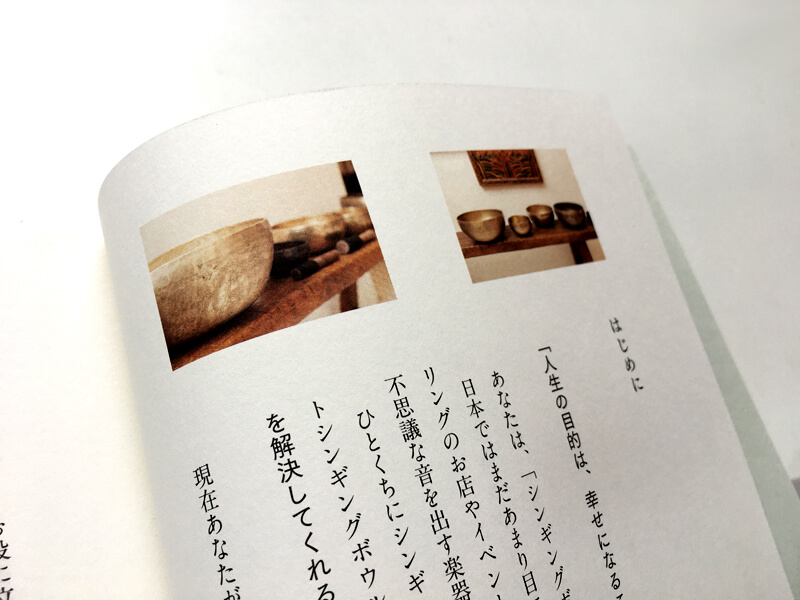 はじめに
「人生の目的は、幸せになるこ
あなたは、「シンギングボ
日本ではまだあまり目
リングのお店やイベン
不思議な音を出す楽器
ひとくちにシンギ
トシンギングボウル
を解決してくれる
現在あなたが
お役に立